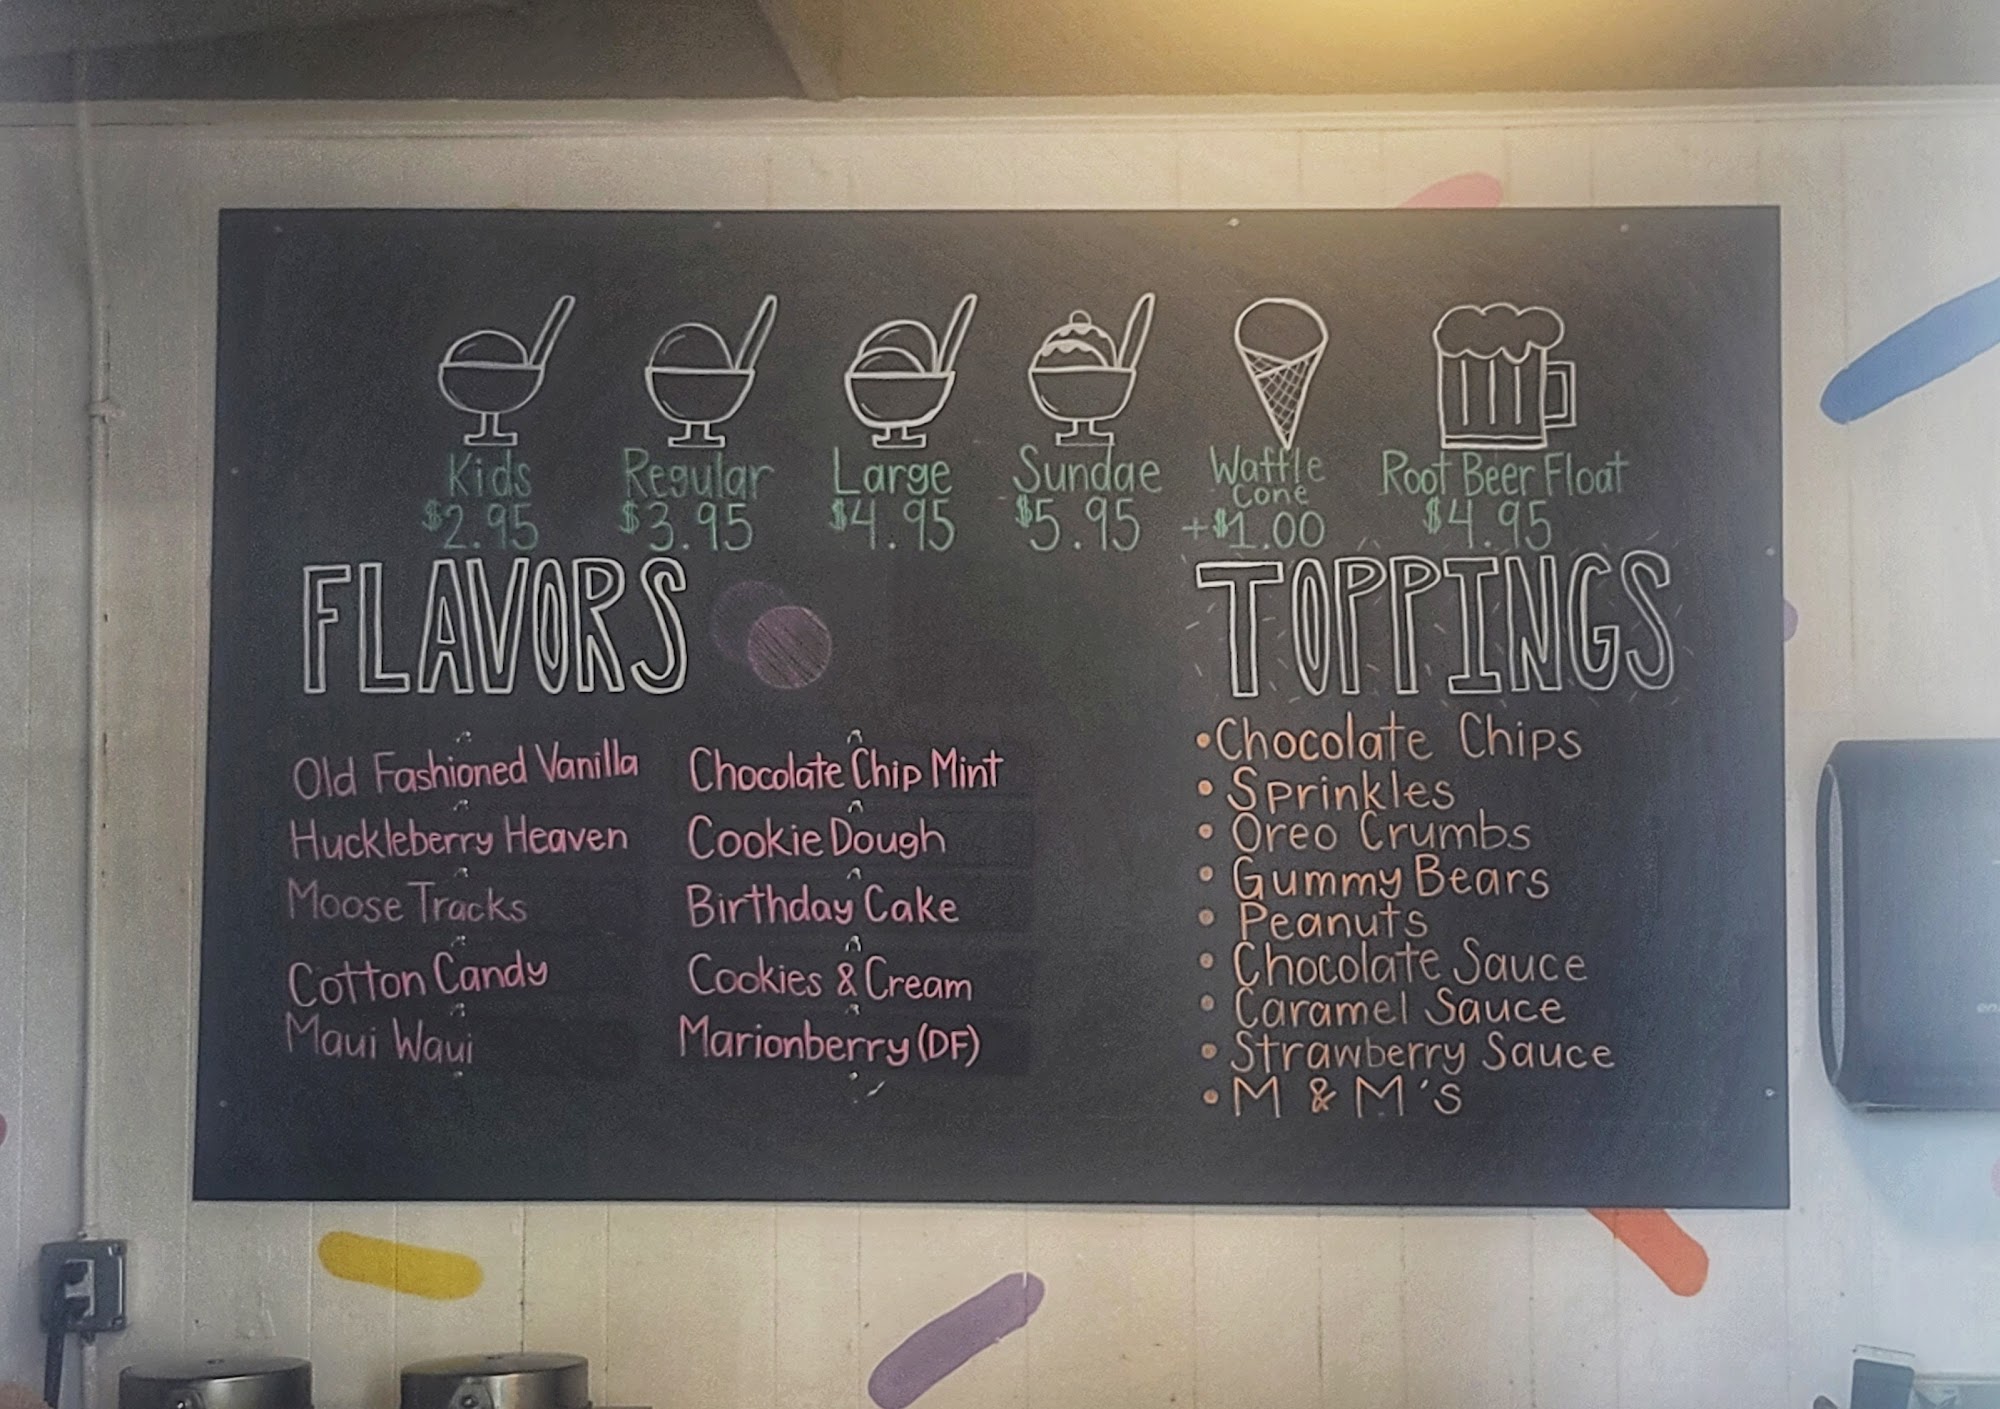 Kids Regular Large Sundae Waffle Cone Root Beer Float
$2.95 $3.95 $4.95 $5.95 +$1.00 $4.95
FLAVORS
Old Fashioned Vanilla
Huckleberry Heaven
Moose Tracks
Cotton Candy
Maui Waui
Chocolate Chip Mint
Cookie Dough
Birthday Cake
Cookies & Cream
Marionberry (DF)
TOPPINGS
• Chocolate Chips
• Sprinkles
• Oreo Crumbs
• Gummy Bears
• Peanuts
• Chocolate Sauce
• Caramel Sauce
• Strawberry Sauce
• M & M's